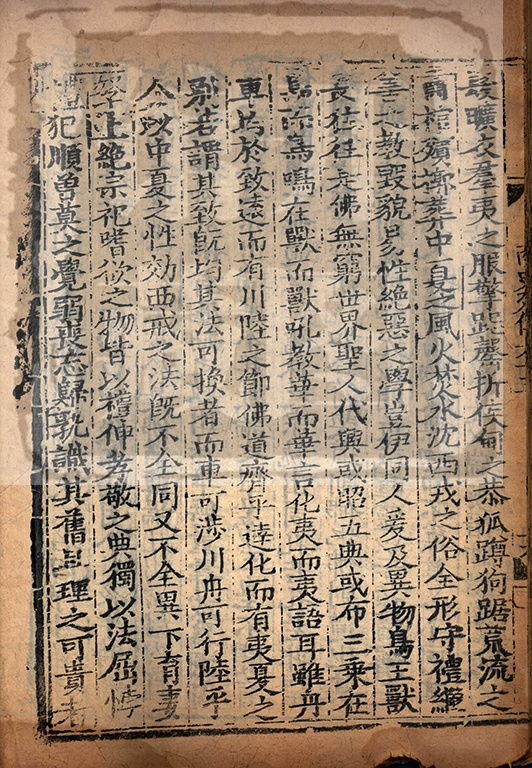 髮曠衣羣夷之服擎跽罄折侯甸之恭狐蹲狗踞荒流之
肅棺殯槨葬中夏之風火焚水沈西戎之俗全形守禮繼
善之教毀貌易性絕惡之學豈伊同人爰及異物鳥王獸
長往往是佛無窮世界聖人代興或昭五典或布三乘在
鳥而鳥鳴在獸而獸吼教華而華言化夷而夷語耳雖舟
車均於致遠而有川陸之節佛道齊乎達化而有夷夏之
別若謂其致旣均其法可換者而車可涉川舟可行陸乎
今以中夏之性効西戎之法旣不全同又不全異下育妻
孥上絕宗祀嗜欲之物皆以禮伸孝敬之典獨以法屈悖
禮犯順曽莫之覺弱喪忘歸孰識其舊且理之可貴者